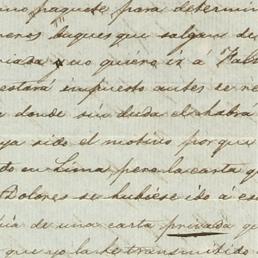 mo paquete para determin
meros buques que salgan de
riada y no quiera ir a Valp
estará impuesto antes de re
a donde sin duda el habrá
ya sido el motivo por que
do en Lima pero la carta q
Dolores se hubiese ido á es
cia de una carta privada q
que yo la he transmitido